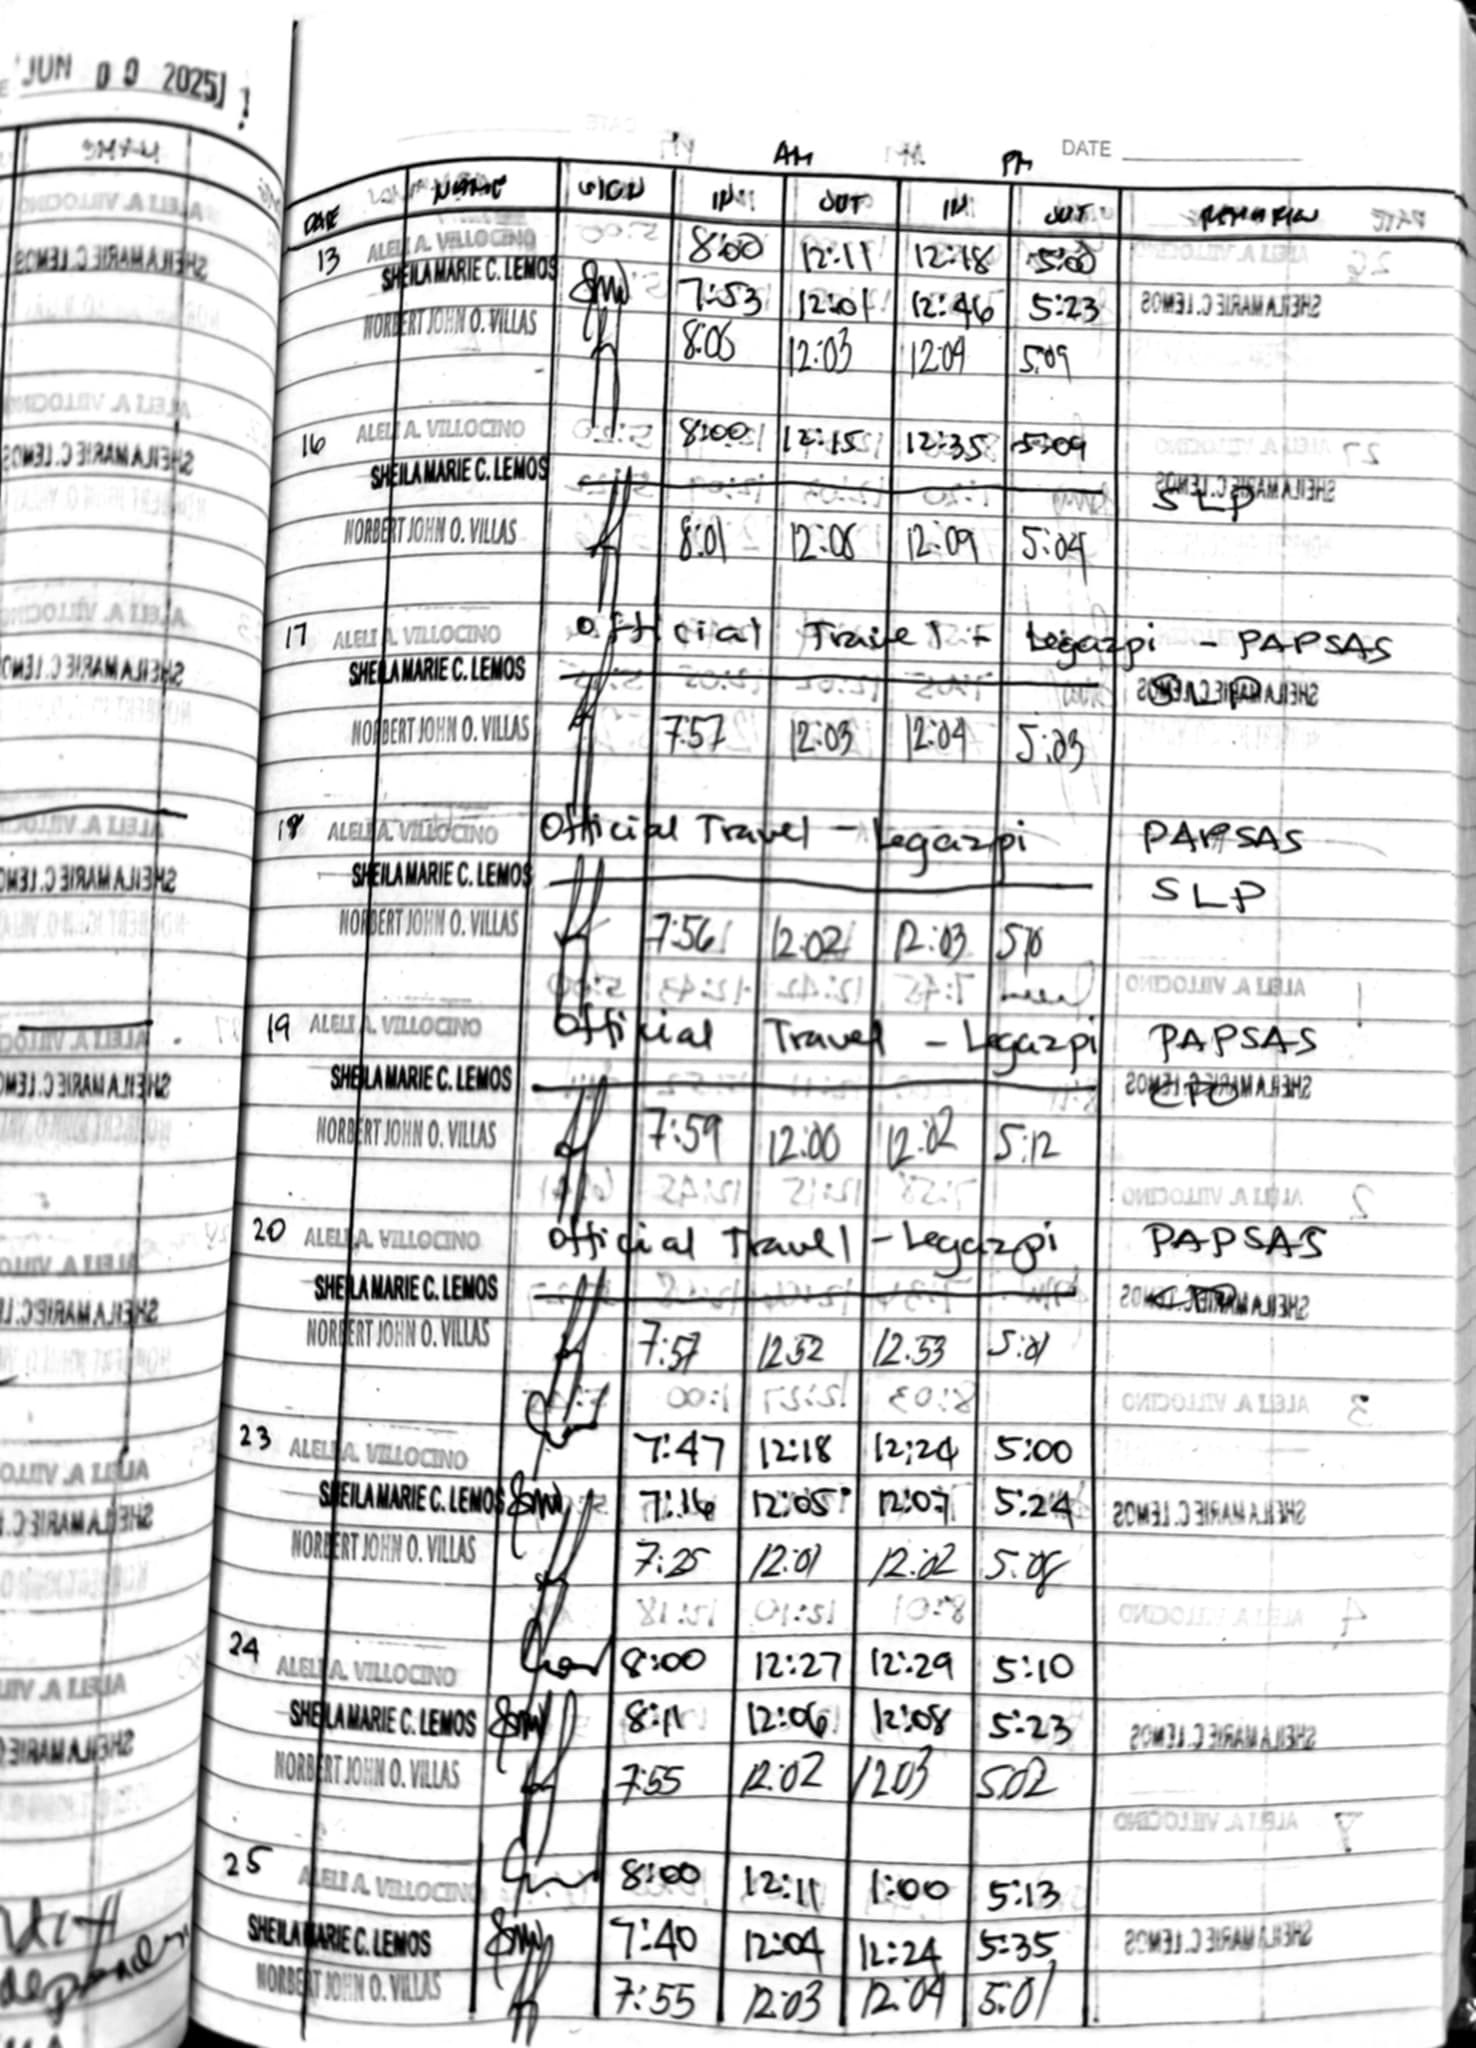 JUN 09 2025
DATE
AM PM
DATE NAME SIGN IN OUT IN OUT REMARKS
13 ALELI A. VILLOCINO 8:00 12:11 12:18 5:00
SHEILA MARIE C. LEMOS 7:53 12:01 12:46 5:23
NORBERT JOHN O. VILLAS 8:05 12:03 12:04 5:09
16 ALELI A. VILLOCINO 8:00 12:15 12:35 5:09
SHEILA MARIE C. LEMOS SLP
NORBERT JOHN O. VILLAS 8:01 12:08 12:09 5:04
17 ALELI A. VILLOCINO Official Travel - Legazpi - PAPSAS
SHEILA MARIE C. LEMOS SLP
NORBERT JOHN O. VILLAS 7:57 12:03 12:04 5:03
18 ALELI A. VILLOCINO Official Travel - Legazpi PAPSAS
SHEILA MARIE C. LEMOS SLP
NORBERT JOHN O. VILLAS 7:56 12:02 12:03
19 ALELI A. VILLOCINO Official Travel - Legazpi PAPSAS
SHEILA MARIE C. LEMOS
NORBERT JOHN O. VILLAS 7:59 12:00 12:02 5:12
20 ALELI A. VILLOCINO Official Travel - Legazpi PAPSAS
SHEILA MARIE C. LEMOS
NORBERT JOHN O. VILLAS 7:57 12:52 12:53 5:01
23 ALELI A. VILLOCINO 7:47 12:18 12:24 5:00
SHEILA MARIE C. LEMOS 7:16 12:05 12:07 5:24
NORBERT JOHN O. VILLAS 7:25 12:01 12:02 5:08
24 ALELI A. VILLOCINO 8:00 12:27 12:29 5:10
SHEILA MARIE C. LEMOS 8:11 12:06 12:08 5:23
NORBERT JOHN O. VILLAS 7:55 12:02 1203 5:02
25 ALELI A. VILLOCINO 8:00 12:11 1:00 5:13
SHEILA MARIE C. LEMOS 7:40 12:04 12:24 5:35
NORBERT JOHN O. VILLAS 7:55 12:03 12:04 5:01